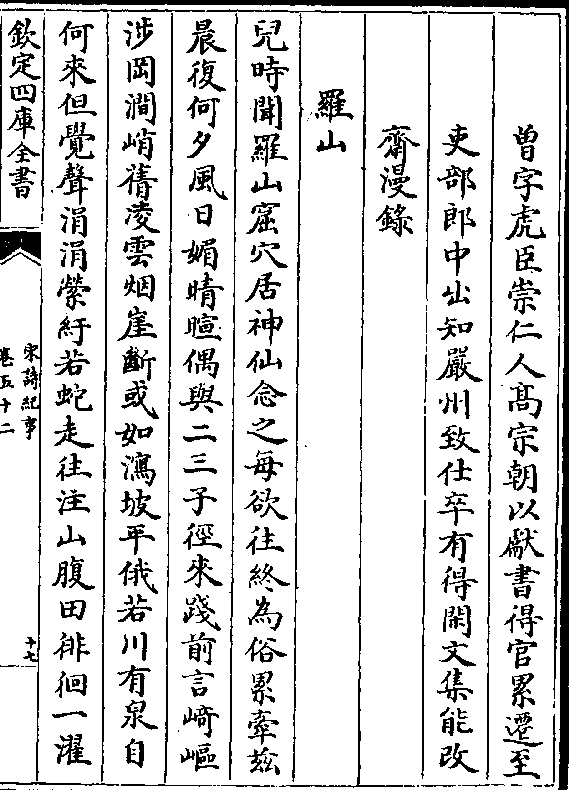 曾字虎臣崇仁人髙宗朝以獻書得官累遷至
吏部郎中出知嚴州致仕卒有得閑文集能改
齋漫錄
羅山
兒時聞羅山窟穴居神仙念之每欲往終為俗累牽兹
晨復何夕風日媚晴暄偶與二三子徑來踐前言﨑嶇
涉岡澗峭蒨凌雲烟崖斷或如瀉坡平俄若川有泉自
何來但覺聲涓涓縈紆若蛇走往注山腹田徘徊一濯
欽定四庫全書
宋詩紀事
卷五十二
十七